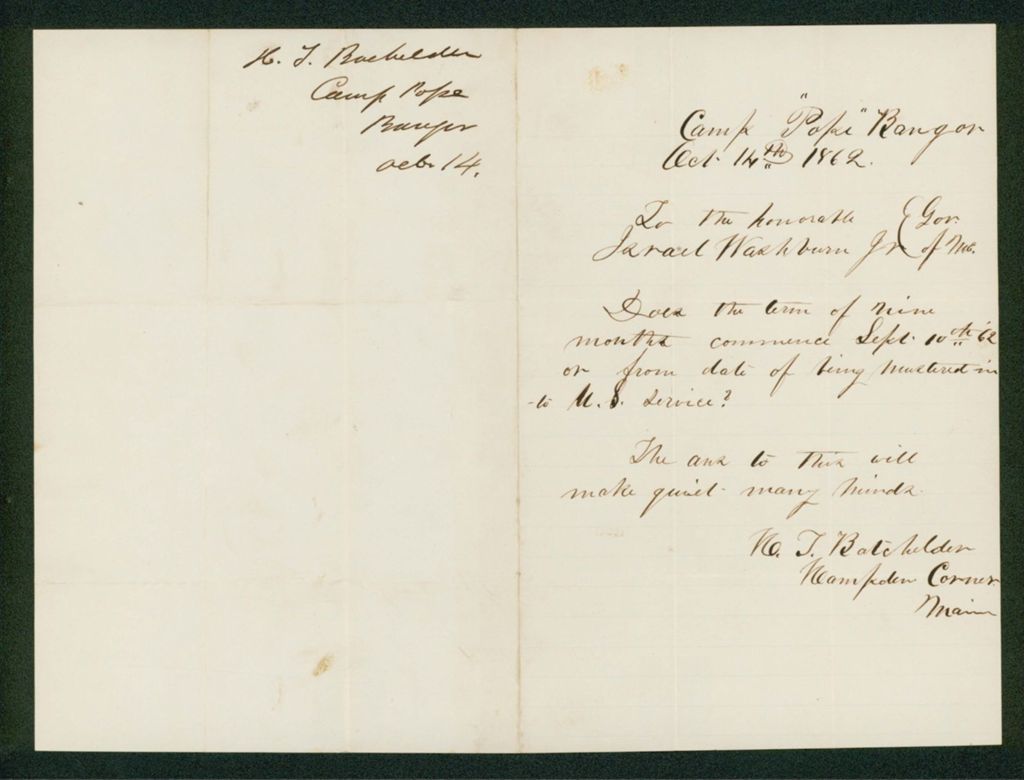 H. T. Bachelder
Camp Pope
Bangor
Oct. 14.
Camp "Pope" Bangor
Oct. 14th 1862.
To the honorable { Gov.
Israel Washburn Jr { of Me.
Does the term of nine
months commence Sept. 10th '62
or from date of being mustered in
-to U. S. service?
The ans to this will
make quiet many minds.
H. T. Batchelder
Hampden Corner
Maine